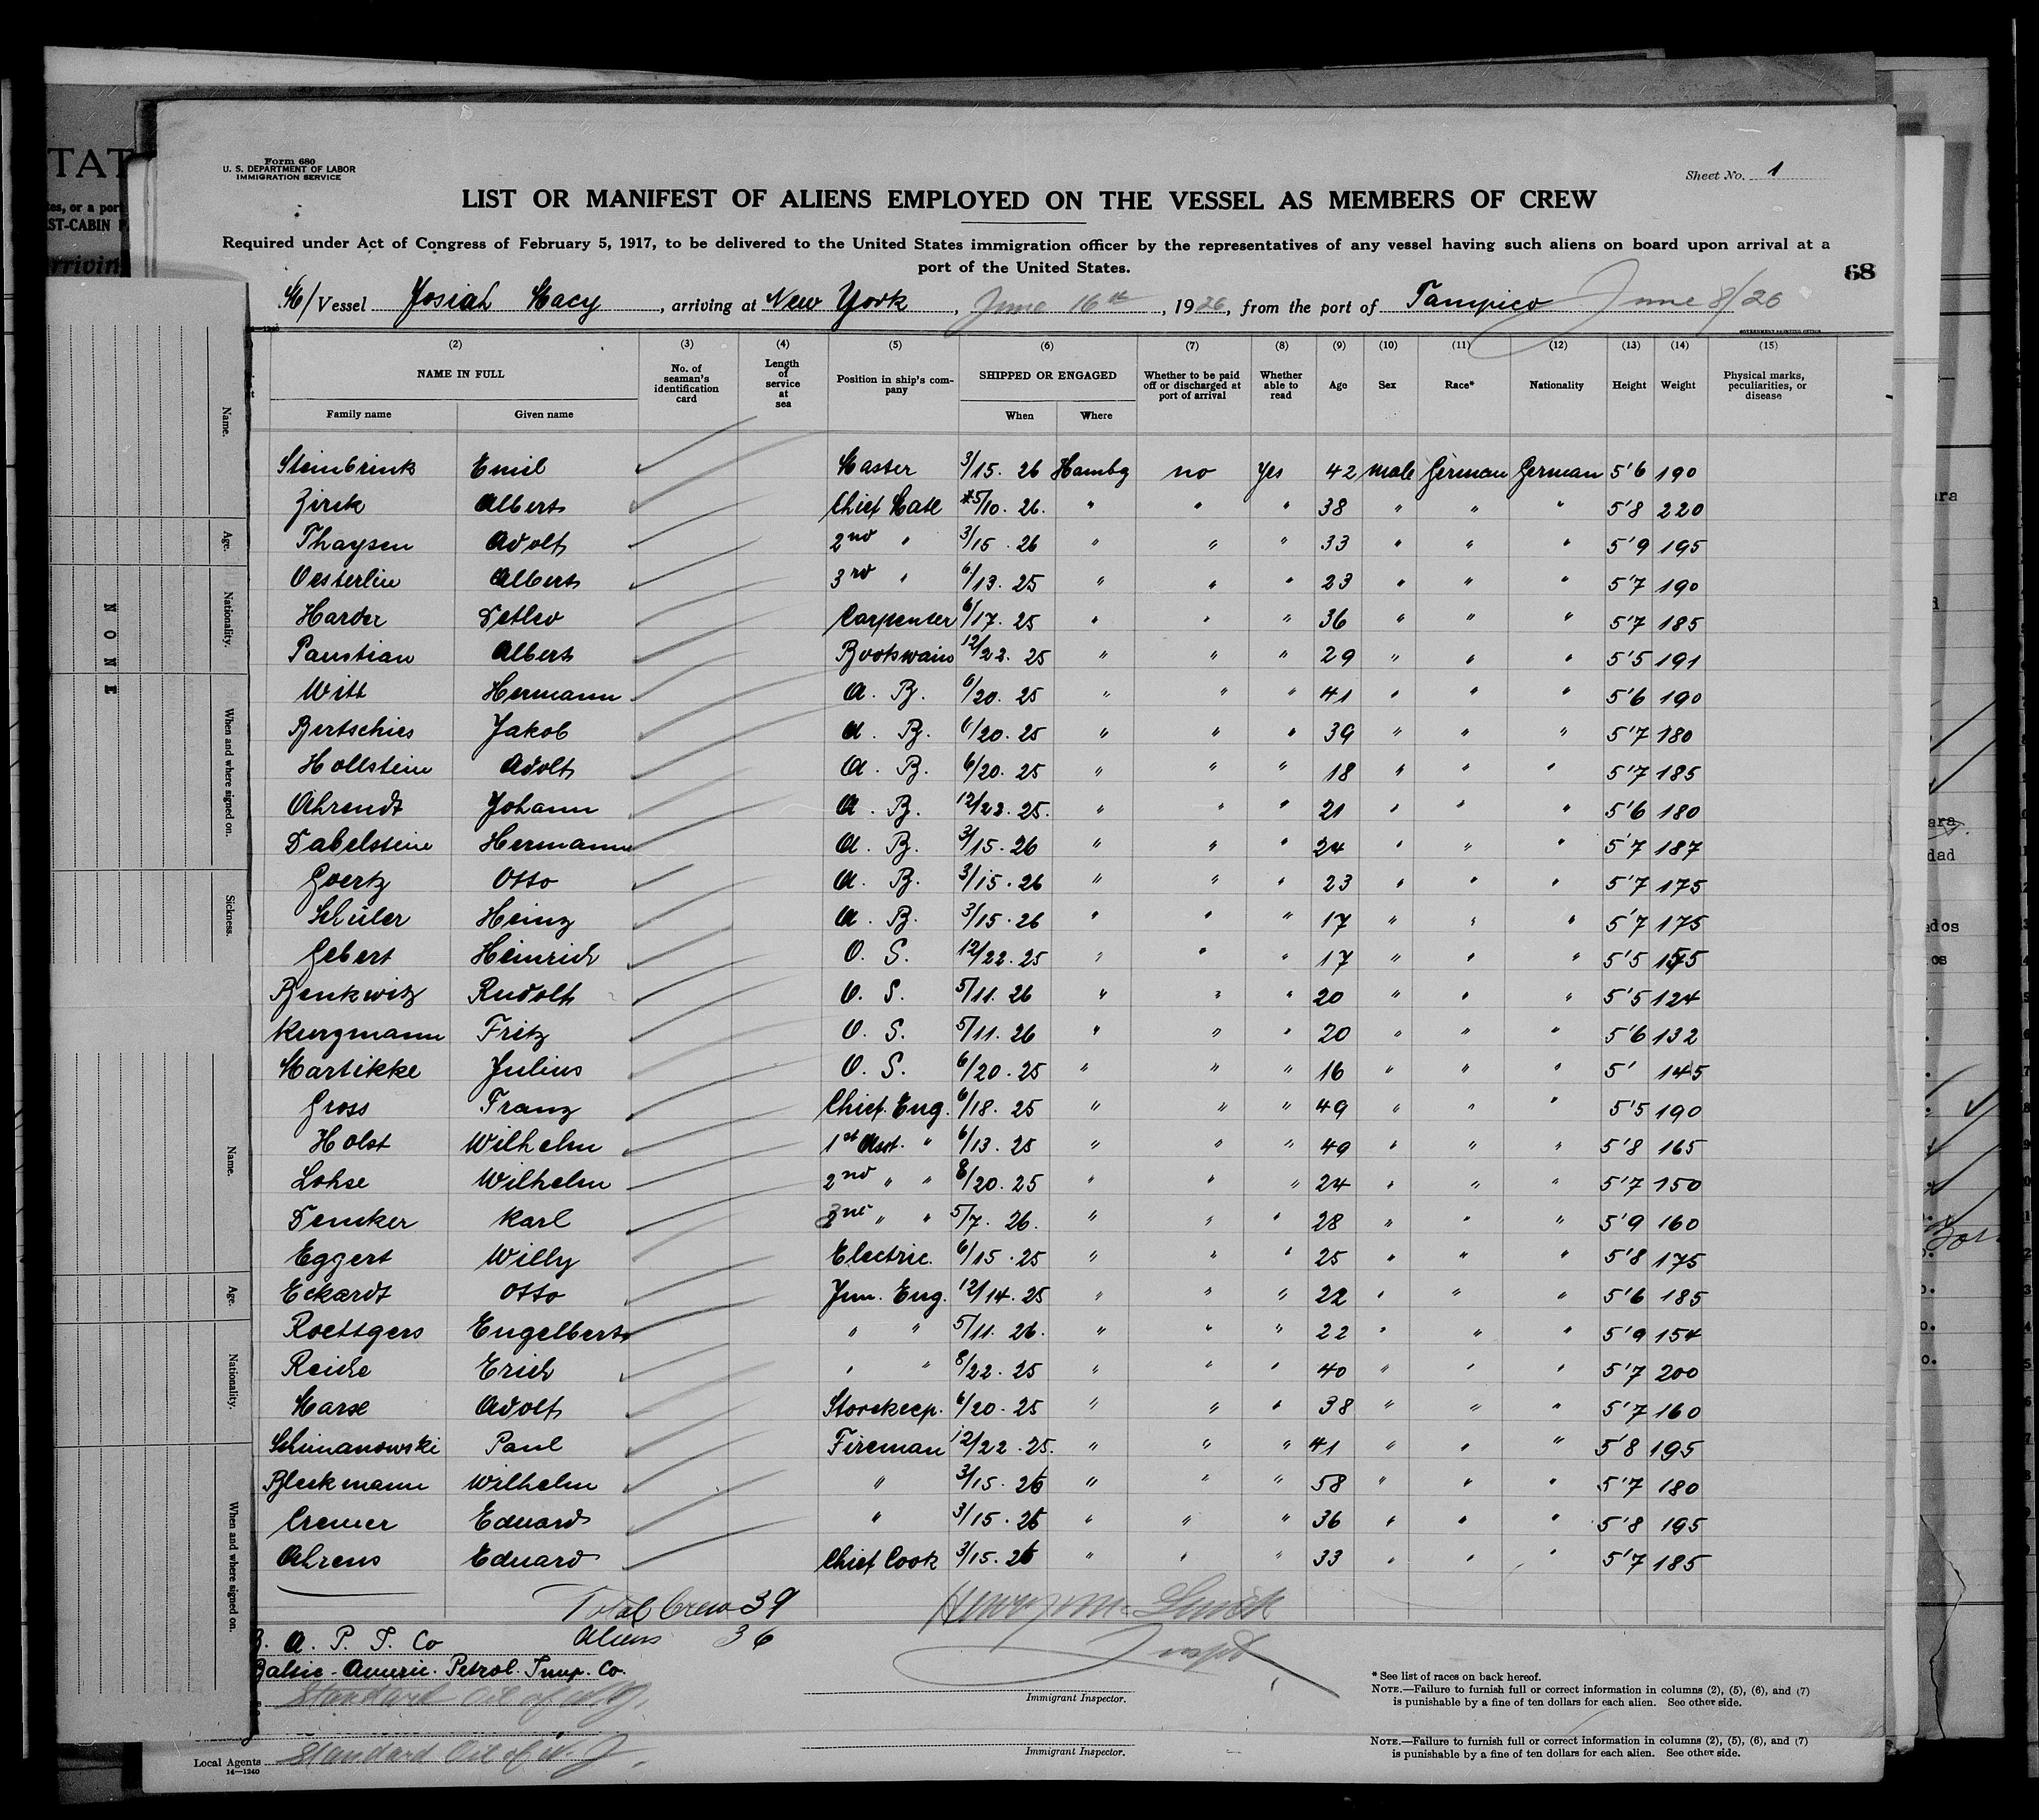 TAT
es, or a port
ST-CABIN P
rriving
Form 680
U. S. DEPARTMENT OF LABOR
IMMIGRATION SERVICE
Sheet No. 1
LIST OR MANIFEST OF ALIENS EMPLOYED ON THE VESSEL AS MEMBERS OF CREW
Required under Act of Congress of February 5, 1917, to be delivered to the United States immigration officer by the representatives of any vessel having such aliens on board upon arrival at a
port of the United States.
68
M/ Vessel Josiah Macy, arriving at New York, June 16th, 1926, from the port of Tampico June 8/26
GOVERNMENT PRINTING OFFICE
(2) (3) (4) (5) (6) (7) (8) (9) (10) (11) (12) (13) (14) (15)
NAME IN FULL No. of seaman's identification card Length of service at sea Position in ship's company SHIPPED OR ENGAGED Whether to be paid off or discharged at port of arrival Whether able to read Age Sex Race* Nationality Height Weight Physical marks, peculiarities, or disease
Family name Given name When Where
Steinbrink Emil Master 3/15. 26 Hambg no yes 42 male German German 5'6 190
Zirck Albert Chief Mate 5/10. 26. " " " 38 " " " 5'8 220
Thaysen Adolf 2nd " 3/15. 26 " " " 33 " " " 5'9 195
Oesterlin Albert 3rd " 6/13. 25 " " " 23 " " " 5'7 190
Harder Detlev Carpenter 6/17. 25 " " " 36 " " " 5'7 185
Paustian Albert Bootswain 12/22. 25 " " " 29 " " " 5'5 191
Witt Hermann A. B. 6/20. 25 " " " 41 " " " 5'6 190
Bertschies Jakob A. B. 6/20. 25 " " " 39 " " " 5'7 180
Hollstein Adolf A. B. 6/20. 25 " " " 18 " " " 5'7 185
Ahrendt Johann A. B. 12/22. 25. " " " 21 " " " 5'6 180
Dabelstein Hermann A. B. 3/15. 26 " " " 24 " " " 5'7 187
Goertz Otto A. B. 3/15. 26 " " " 23 " " " 5'7 175
Schüler Heinz A. B. 3/15. 26 " " " 17 " " " 5'7 175
Gebert Heinrich O. S. 12/22. 25 " " " 17 " " " 5'5
Benkwitz Rudolf O. S. 5/11. 26 " " " 20 " " " 5'5 124
Kurzmann Fritz O. S. 5/11. 26 " " " 20 " " " 5'6 132
Martikke Julius O. S. 6/20. 25 " " " 16 " " " 5' 145
Gross Franz Chief. Eng. 6/18. 25 " " " 49 " " " 5'5 190
Holst Wilhelm 1st Asst. " 6/13. 25 " " " 49 " " " 5'8 165
Lohse Wilhelm 2nd " " 8/20. 25 " " " 24 " " " 5'7 150
Demker Karl " " 5/7. 26. " " " 28 " " " 5'9 160
Eggert Willy Electric. 6/15. 25 " " " 25 " " " 5'8 175
Eckardt Otto Jun. Eng. 12/14. 25 " " " 22 " " " 5'6 185
Roettgers Engelbert " " 5/11. 26. " " " 22 " " " 5'9 154
Reiche Erich " " 8/22. 25 " " " 40 " " " 5'7 200
Marse Adolf Storekeep. 6/20. 25 " " " 38 " " " 5'7 160
Schimanowski Paul Fireman 12/22. 25. " " " 41 " " " 5'8 195
Bleckmann Wilhelm " 3/15. 26 " " " 58 " " " 5'7 180
Cremer Eduard " 3/15. 26 " " " 36 " " " 5'8 195
Ahrens Eduard Chief Cook 3/15. 26 " " " 33 " " " 5'7 185
Total Crew 39
Aliens 36
B. A. P. I. Co
Baltic-Americ. Petrol. Imp. Co.
Standard Oil of N. J.
Immigrant Inspector.
* See list of races on back hereof.
NOTE.—Failure to furnish full or correct information in columns (2), (5), (6), and (7)
is punishable by a fine of ten dollars for each alien. See other side.
Local Agents Standard Oil of N. J.
14—1240
Immigrant Inspector.
NOTE.—Failure to furnish full or correct information in columns (2), (5), (6), and (7)
is punishable by a fine of ten dollars for each alien. See other side.
Name.
Age.
Nationality.
When and where signed on.
Sickness.
NONE
Name.
Age.
Nationality.
When and where signed on.